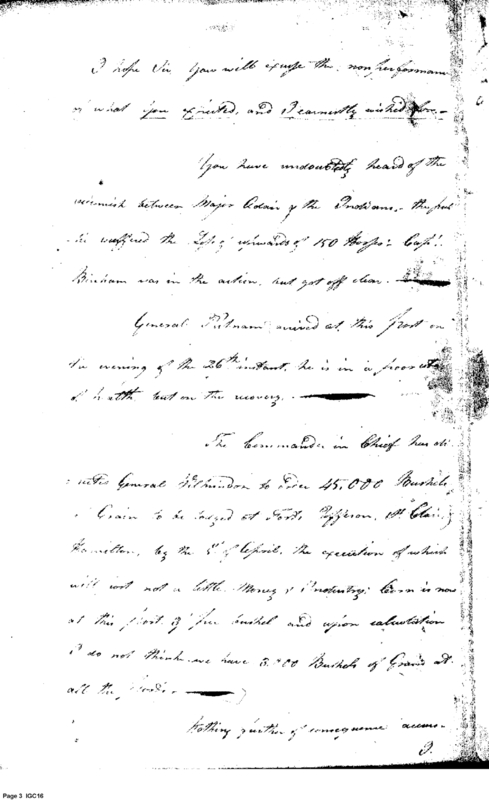 I hope Sir You will excuse the non performan
of what you expected, and I earnestly wished for.
You have undoubtedly heard of the
between Major Adair & the Indians, the
he suffered the Loss of upwards of 150 Horses. Capt.
was in the action, but got off clear.
General Putnam arrived at this post on
the evening of the 26th instant, he is in a poor state
of health but on the recovery.
The Commander in Chief has di
rected General Wilkinson to order 45,000 Bushels
Grain to be lodged at Forts Jefferson, St Clair,
Hamilton, by the of April. the execution of which
will cost not a little Money & industry: Corn is now
at this post per bushel and upon calculation
I do not think we have Bushels of Grain at
all the
Nothing further of consequence
I.
Page 3 IGC16